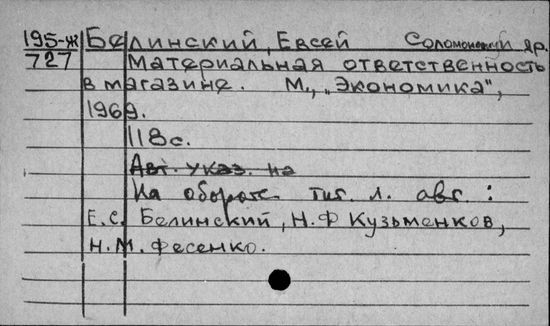 195-Ж Белинский, Евсей Соломонович яр.
727 Материальная ответственность
в магазине. М., „Экономика",
1969.
118 с.
Авт. указ. на
На обороте тит. л. авт.:
Е.С. Белинский, Н.Ф Кузьменков,
Н.М. Фесенко.